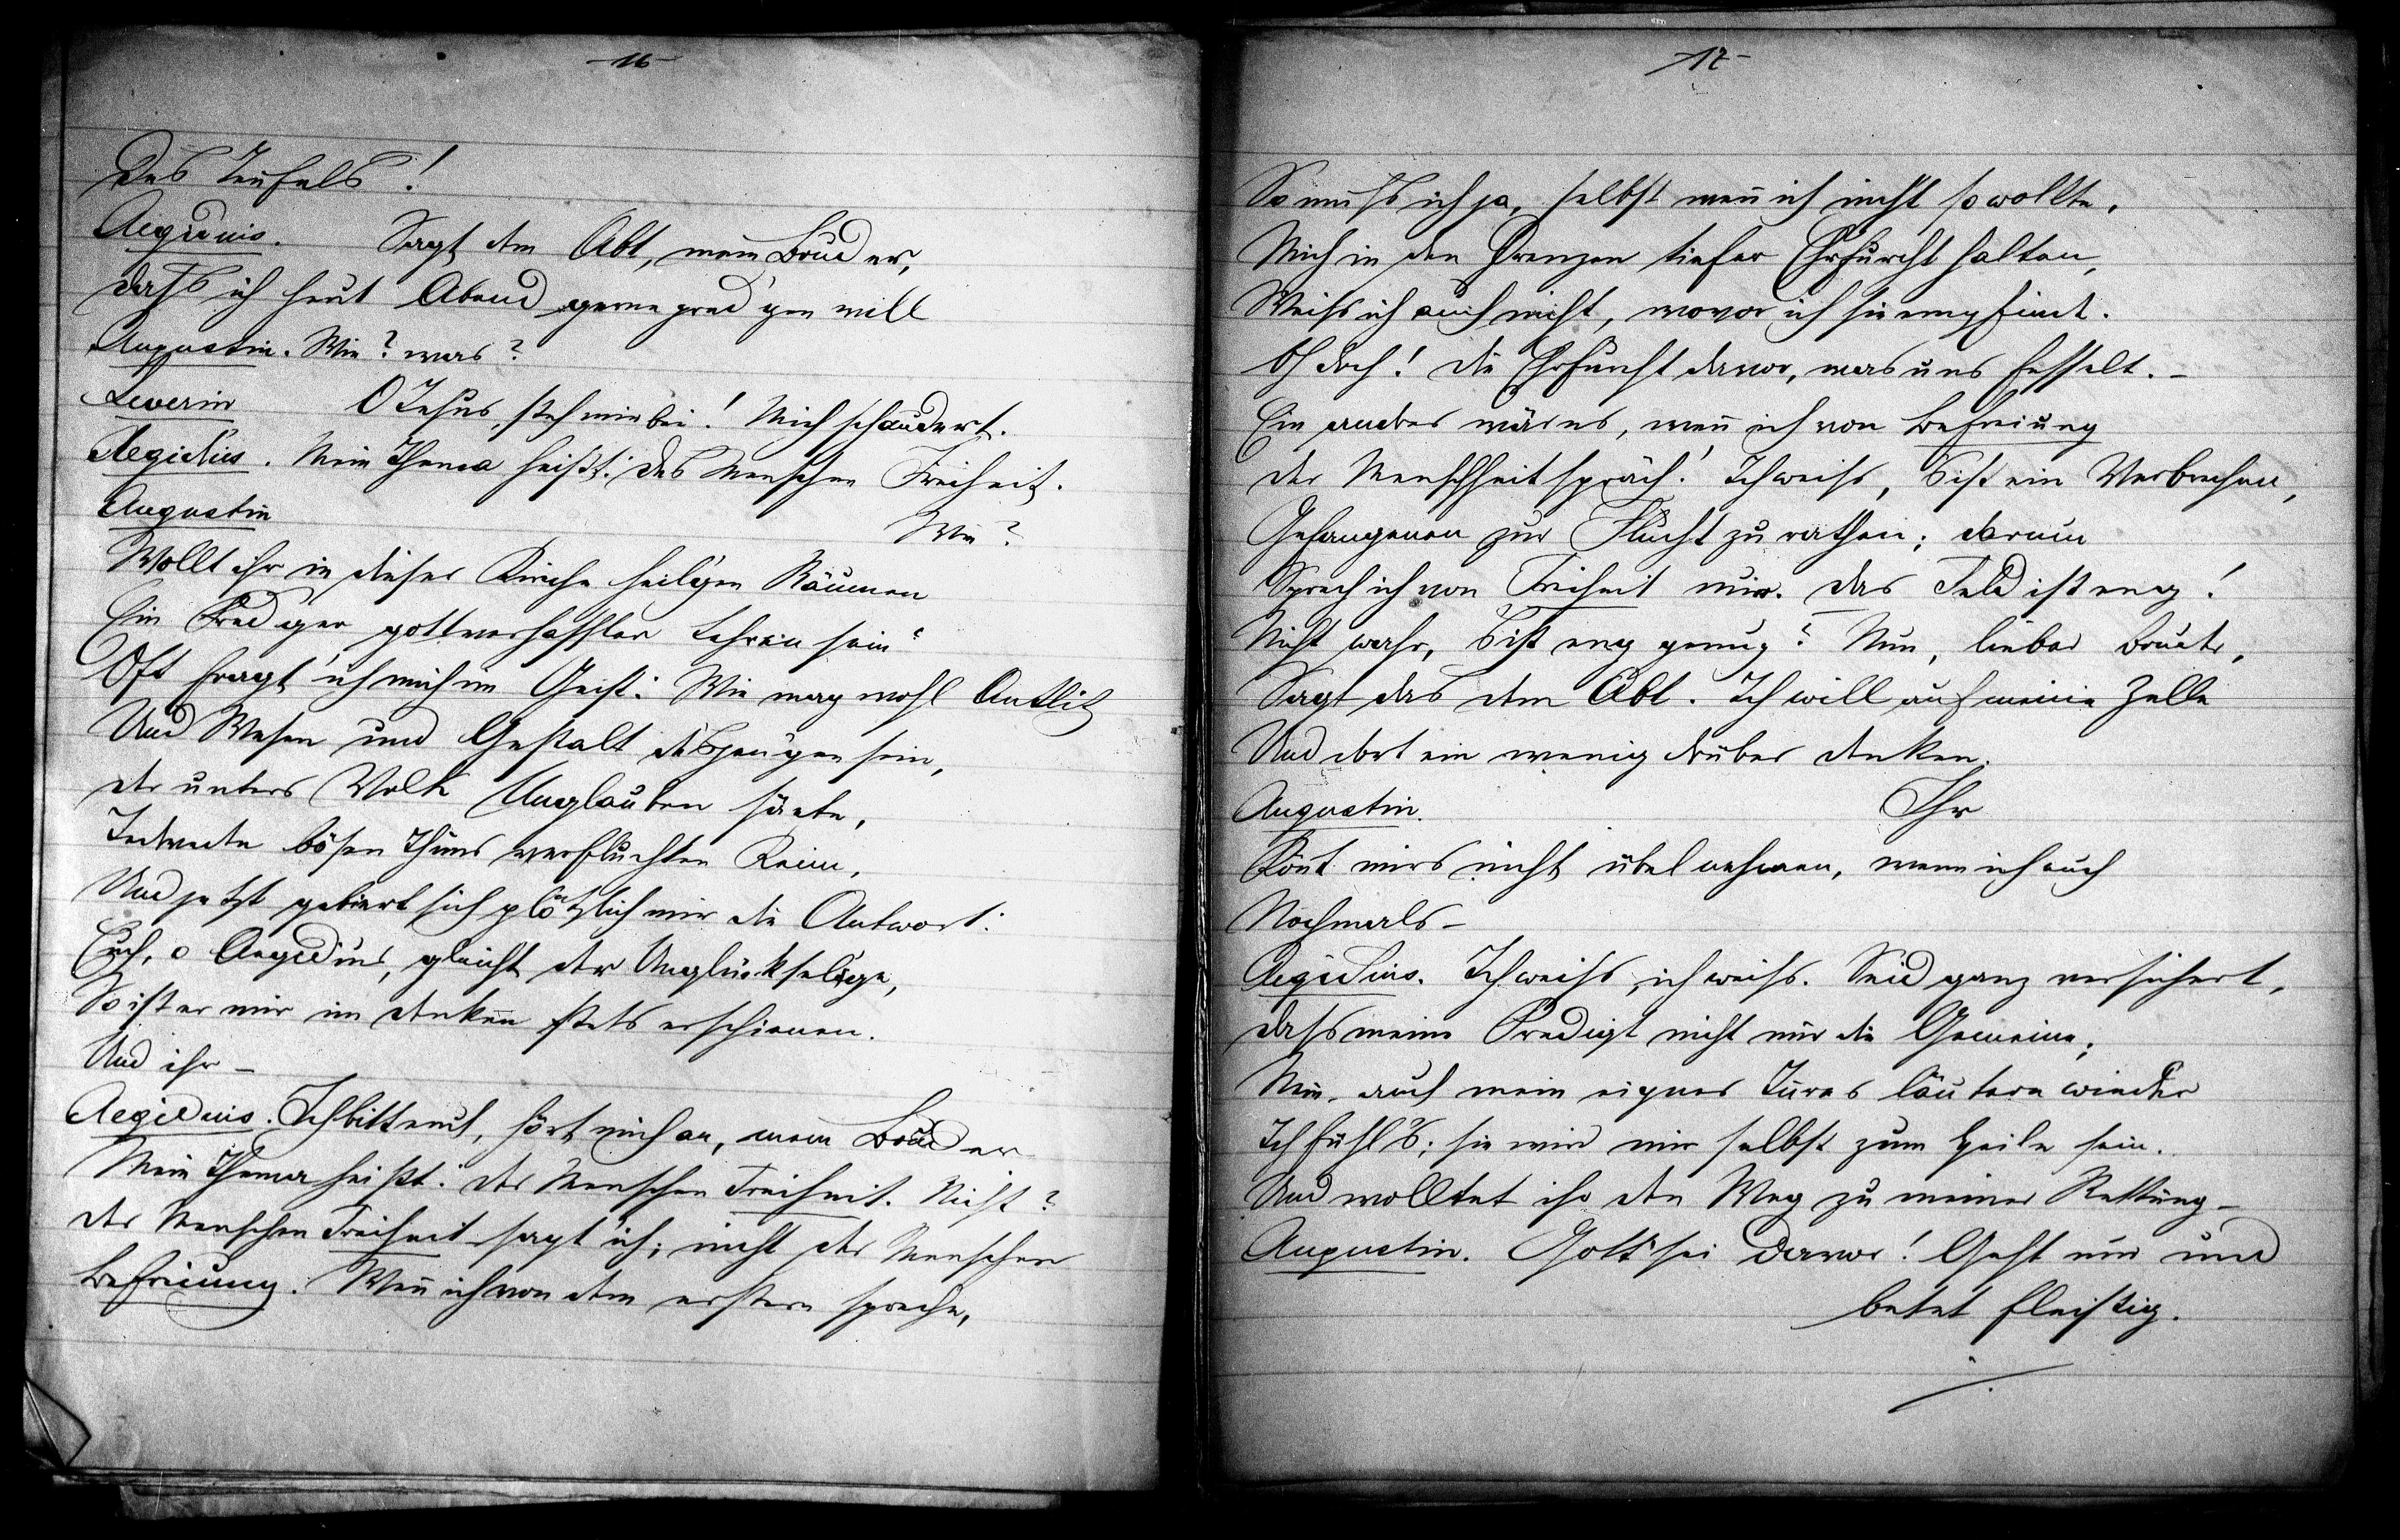 -16-
Des Teufels!
Aegidius. Sagt dem Abt, mein Bruder,
dass ich heut Abend gerne pred'gen will
Augustin. Wie? was?
Severin O Jesus, steh mir bei! Mich schaudert.
Aegidius. Mein Thema heißt: des Menschen Freiheit.
Augustin Wie?
Wollt ihr in dieser Kirche heil'gen Räumen
Ein Pred'ger gottverhasster Lehren sein?
Oft fragt' ich mich im Geist: Wie mag wohl Antlitz
Und Wesen und Gestalt desjen'gen sein,
der unters Volk Unglauben säete,
Jedwede bösen Thuns verfluchten Keim,
Und jetzt gebiert sich plötzlich mir die Antwort:
Euch, o Aegidius, gleicht der Unglücksel'ge,
So ist er mir im denken stets erschienen.
Und ihr –
Aegidius. Ich bitt euch, hört mich an, mein Bruder
Mein Thema heißt: der Menschen Freiheit. Nicht?
der Menschen Freiheit sagt ich; nicht der Menschen
Befreiung. Weñ ich von dem erstern spreche,
-17-
So muss ich ja, selbst weñ ich nicht so wollte,
Mich in den Grenzen tiefer Ehrfurcht halten,
Weiss ich auch nicht, wovor ich sie empfind.
Oh doch! die Ehrfurcht davor, was uns fesselt. –
Ein andres wär es, weñ ich von Befreiung
der Menschheit spräch! Ich weiss, 's ist ein Verbrechen,
Gefangenen zur Flucht zu rathen; darum
Sprech ich von Freiheit nur. das Feld ist eng!
Nicht wahr, 's ist eng genug? Nun, lieber Bruder,
Sagt das dem Abt. Ich will auf meine Zelle
Und dort ein wenig drüber denken.
Augustin. Ihr
Köñt mirs nicht übel nehmen, wenn ich euch
Nochmals –
Aegidius. Ich weiss, ich weiss. Seid ganz versichert,
dass meine Predigt nicht nur die Gemeine,
Nein, auch mein eignes Inres läutern wird
Ich fühl's; sie wird mir selbst zum Heile sein.
Und wolltet ihr den Weg zu meiner Rettung –
Augustin. Gott sei davor! Geht nur und
betet fleißig.